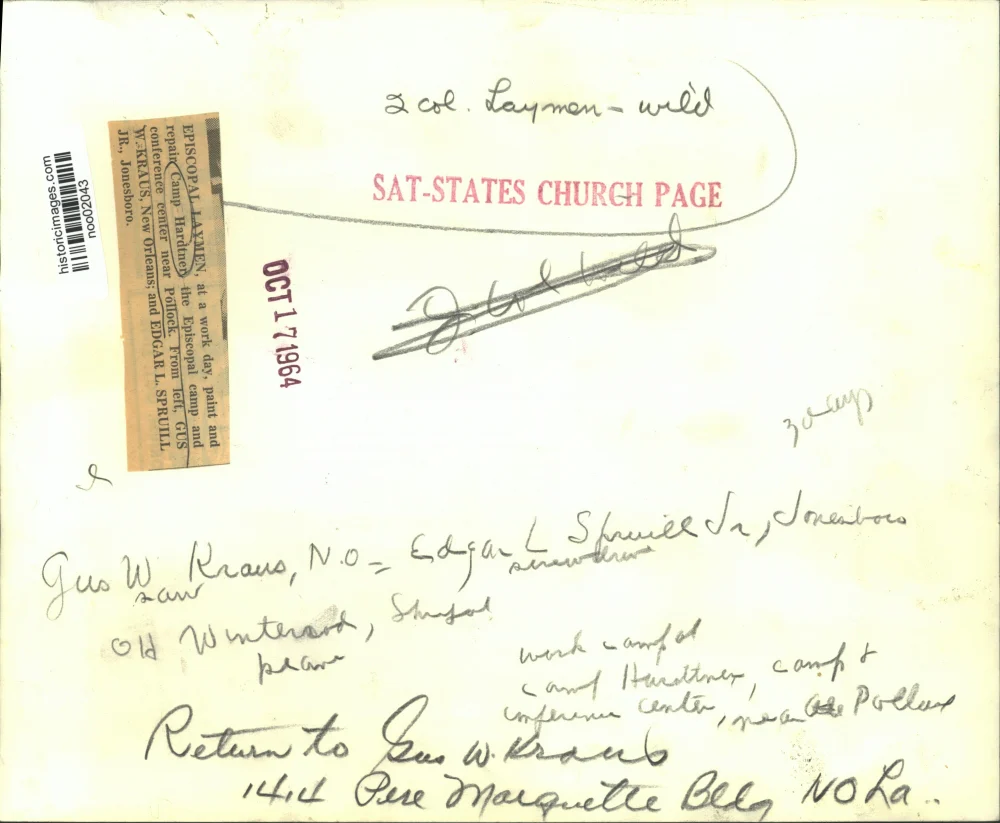 2 col. Laymen - wild
SAT-STATES CHURCH PAGE
historicimages.com
noo02043
EPISCOPAL LAYMEN, at a work day, paint and
repair Camp Hardtner, the Episcopal camp and
conference center near Pollock. From left, GUS
W. KRAUS, New Orleans; and EDGAR L. SPRUILL
JR., Jonesboro.
OCT 17 1964
Gus W Kraus, N.O - Edgar L Spruill Jr, Jonesboro
saw screwdriver
Old Winterrod, Shrfort
plane
work camp at
camp Hardtner, camp &
conference center, near Pollock
Return to Gus W. Kraus
1414 Pere Marquette Bldg NO La..